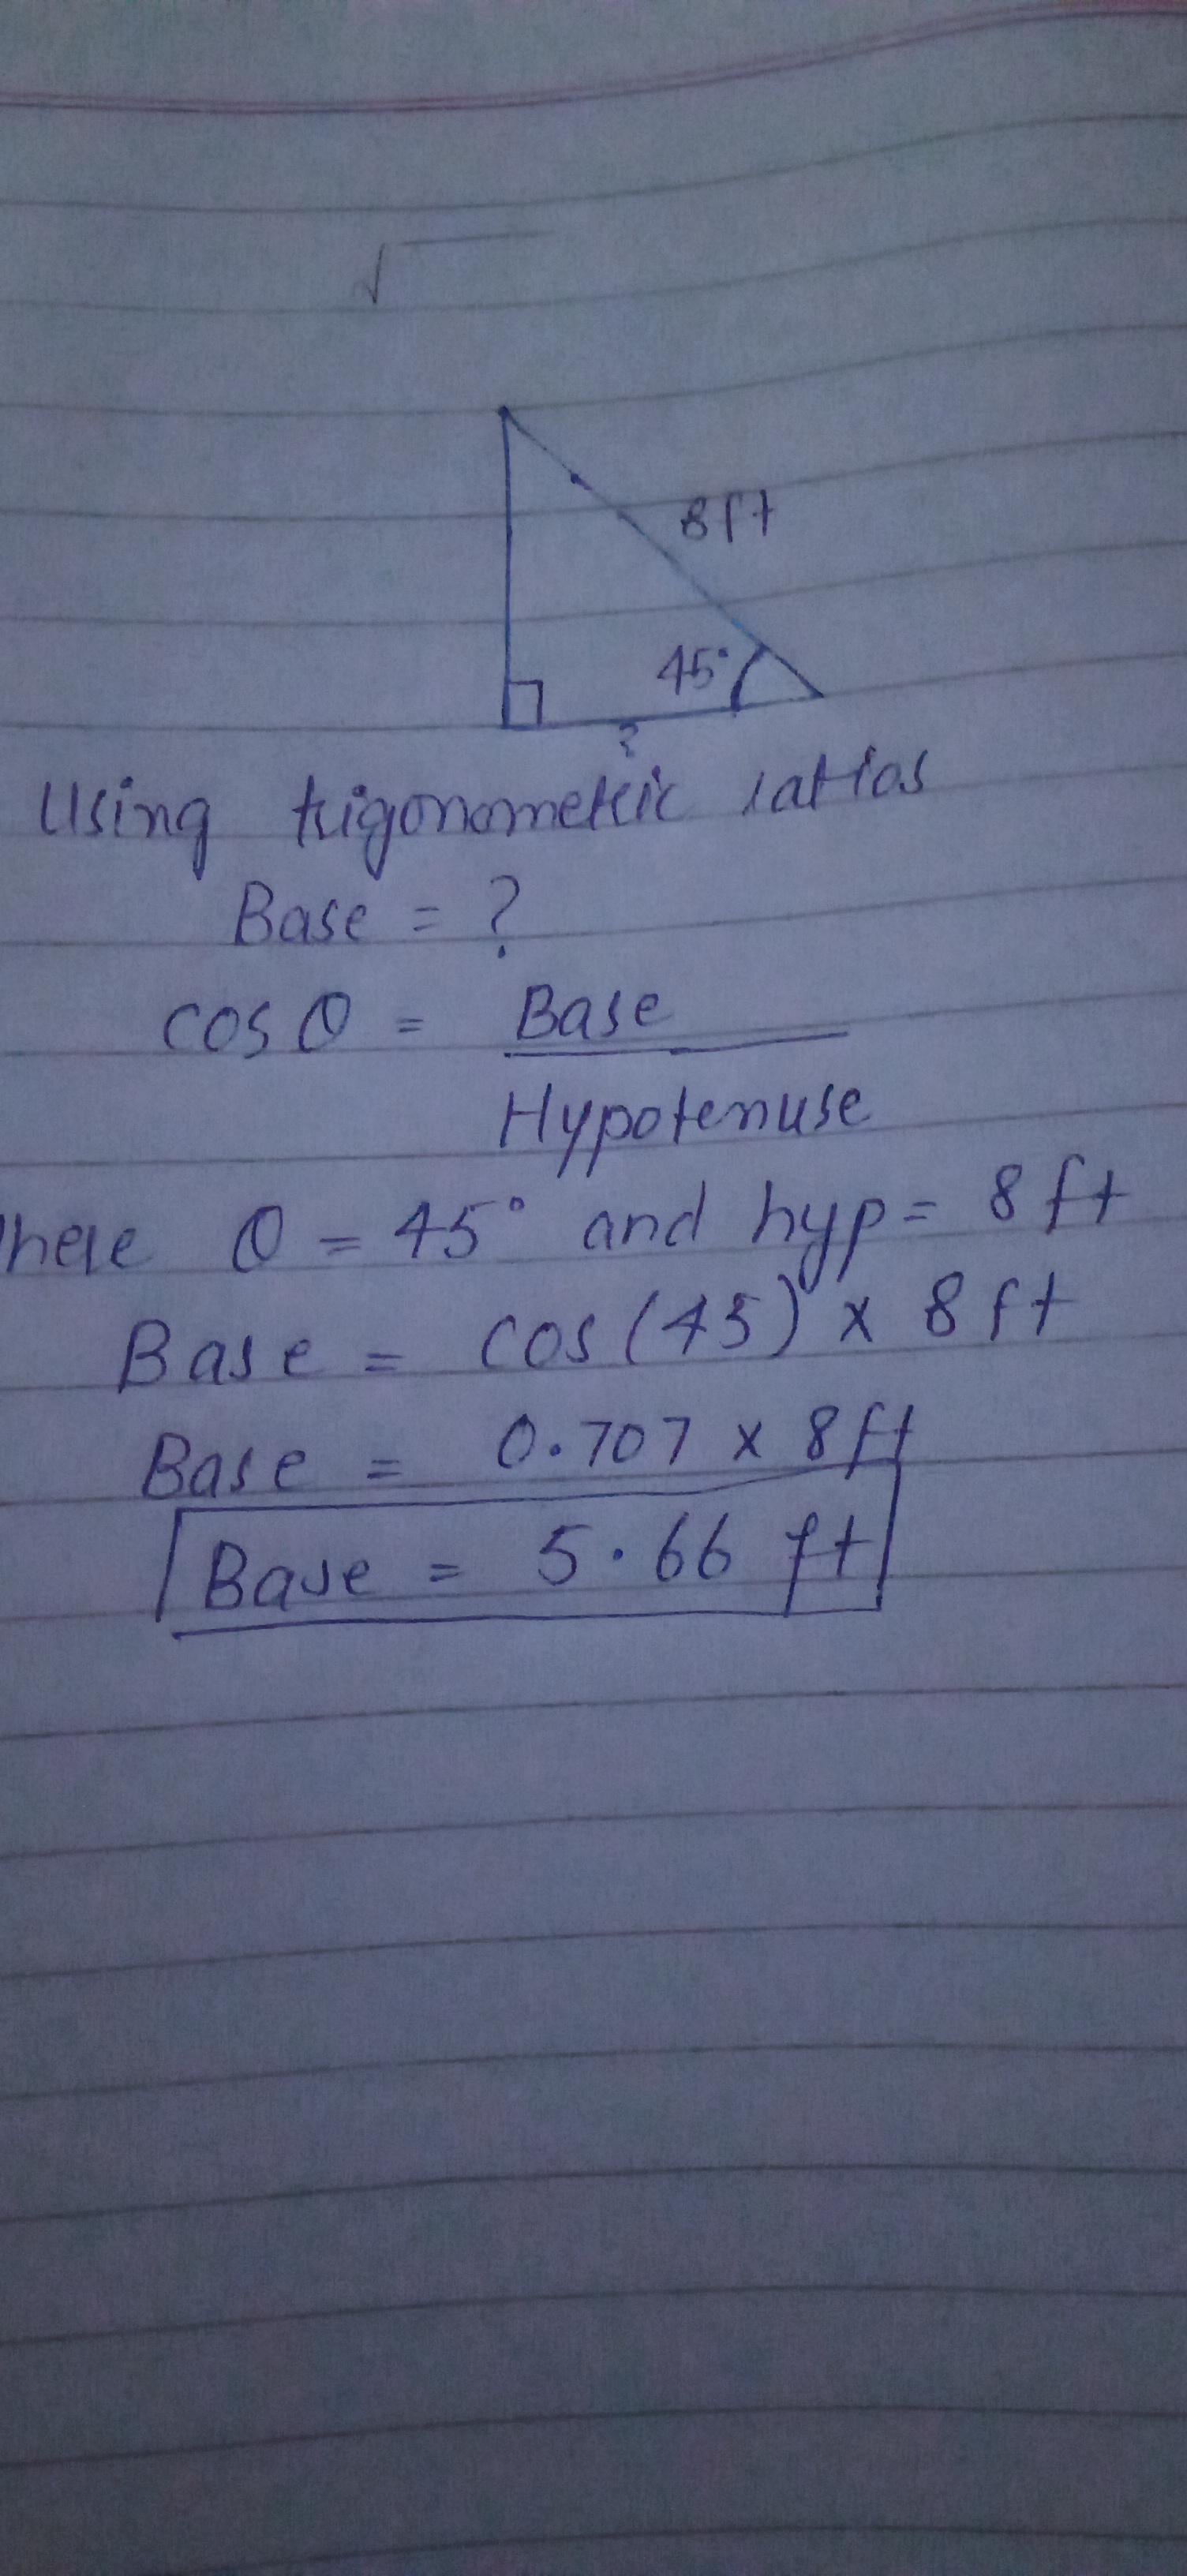 √
8ft
45°
?
Using trigonometric ratios
Base = ?
cos θ = Base
Hypotenuse
here θ = 45° and hyp = 8 ft
Base = cos(45) × 8 ft
Base = 0.707 × 8 ft
Base = 5.66 ft